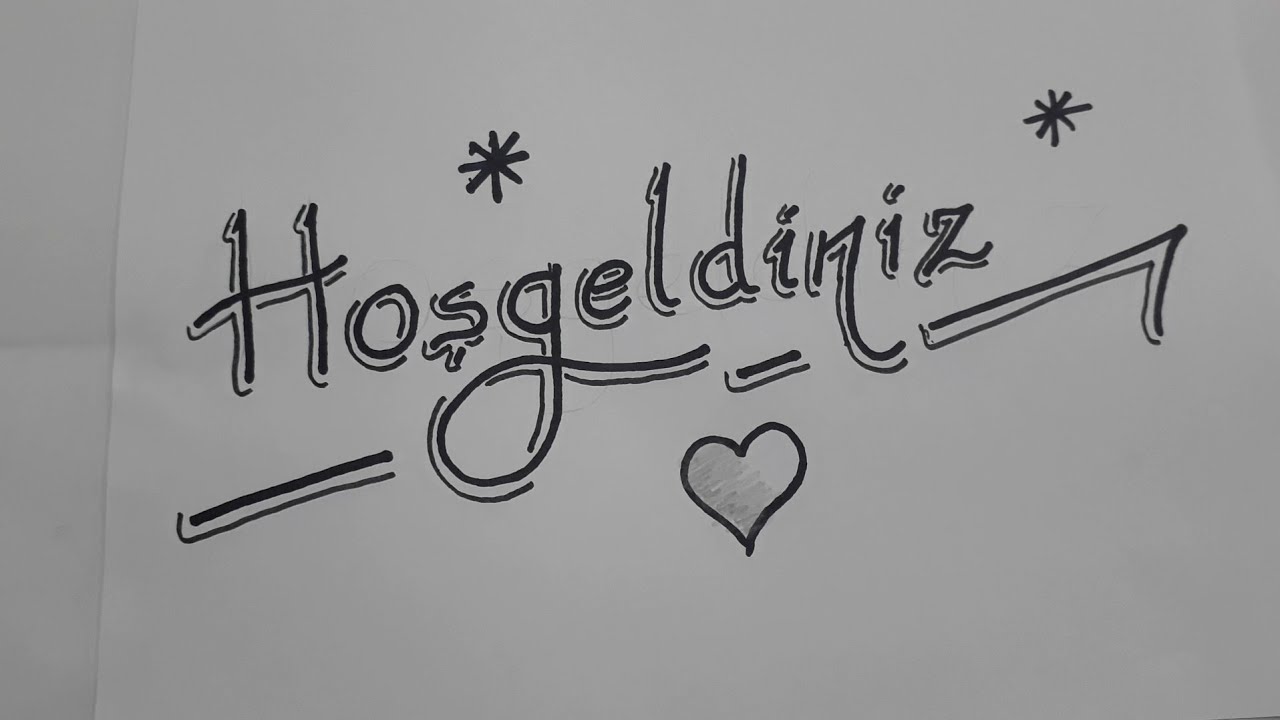 Hoşgeldiniz